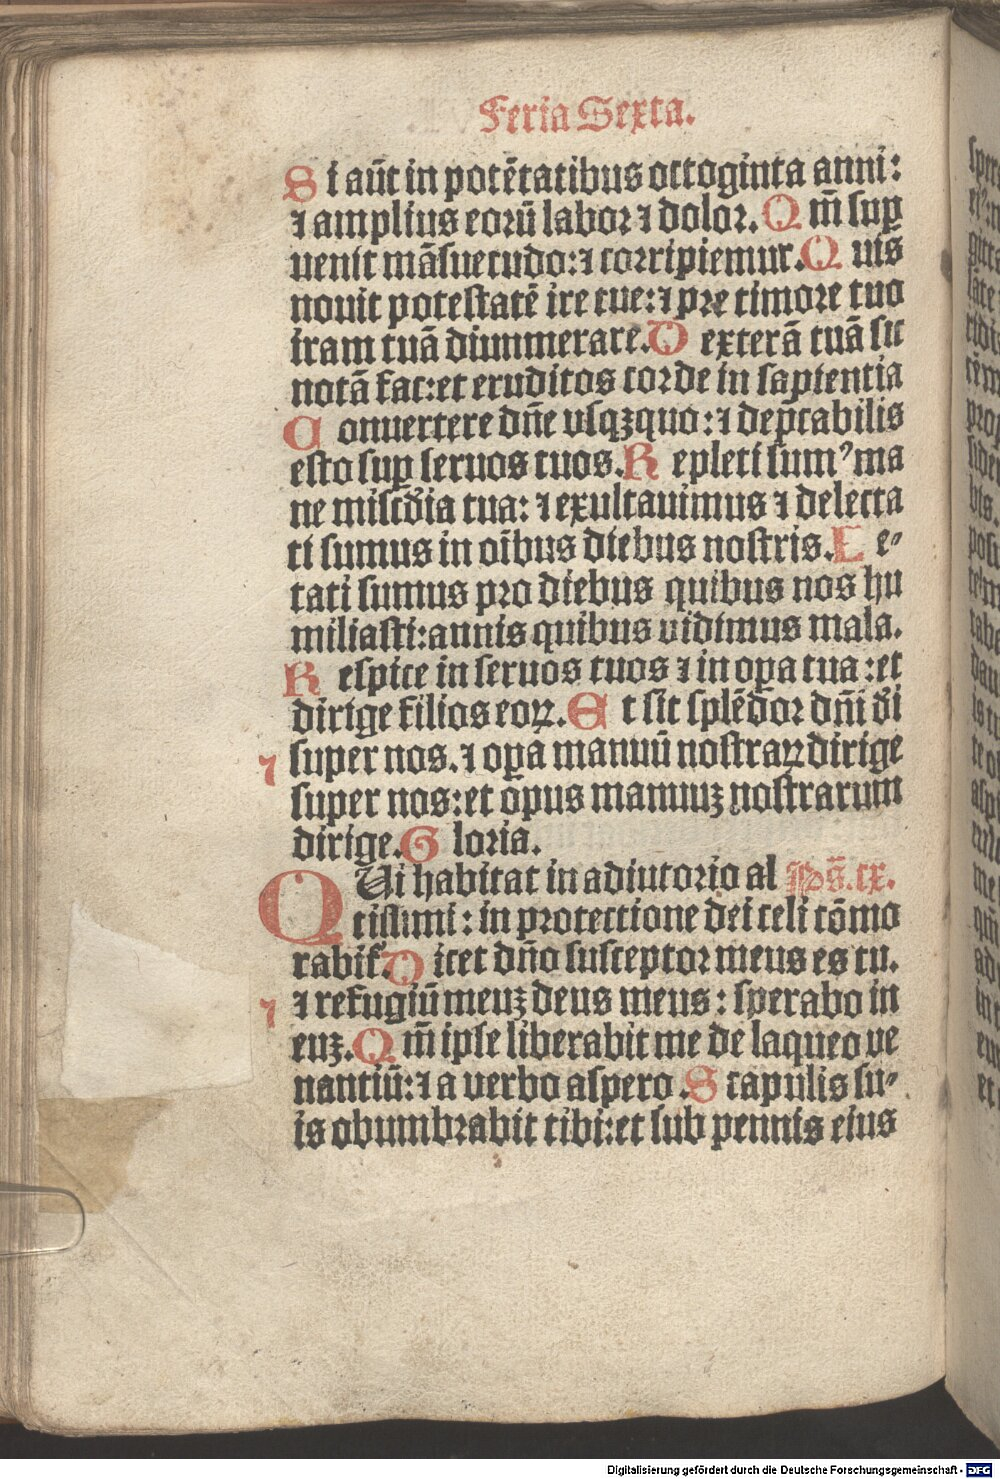 Feria Sexta.
Si aūt in potētatibus octoginta anni:
⁊ amplius eorū labor ⁊ dolor. Qm̄ suꝑ
uenit māsuetudo: ⁊ corripiemur. Quis
nouit potestatē ire tue: ⁊ pre timore tuo
iram tuā dinumerare. Dexterā tuā sic
notā fac: et eruditos corde in sapientia
Conuertere dn̄e vsqꝫquo: ⁊ dep̄cabilis
esto suꝑ seruos tuos. Repleti sumꝰ ma
ne misc̄dia tua: ⁊ exultauimus ⁊ delecta
ti sumus in oībus diebus nostris. Le⸗
tati sumus pro diebus quibus nos hu
miliasti: annis quibus vidimus mala.
Respice in seruos tuos ⁊ in oꝑa tua: et
dirige filios eoꝝ. Et sit splēdor dn̄i d̄i
⁊ super nos. ⁊ oꝑa manuū nostraꝝ dirige
super nos: et opus manuuꝫ nostrarum
dirige. Gloria.
QUi habitat in adiutorio al Ps̄. xc.
tissimi: in protectione dei celi cōmo
rabiť. Dicet dn̄o susceptor meus es tu.
⁊ ⁊ refugiū meuꝫ deus meus: sperabo in
euꝫ. Qm̄ ipse liberabit me de laqueo ve
nantiū: ⁊ a verbo aspero. Scapulis su⸗
is obumbrabit tibi: et sub pennis eius
Digitalisierung gefördert durch die Deutsche Forschungsgemeinschaft - DFG